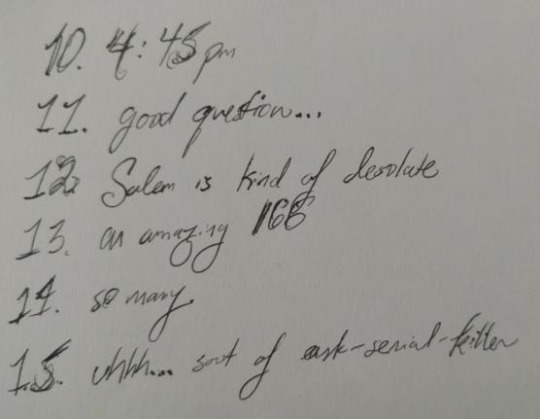 10. 4:45pm
11. good question...
12. Salem is kind of desolate
13. an amazing 166
14. so many
15. uhhh... sort of ask-serial-killer